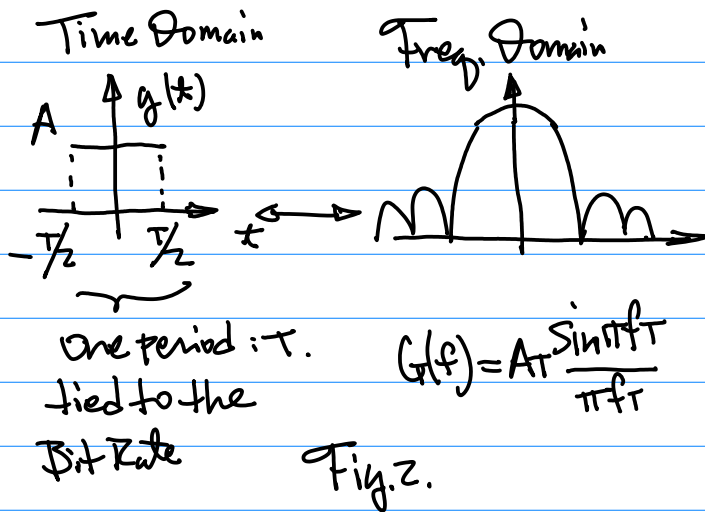 Time Domain
Freq. Domain
A
g(t)
-T/2
T/2
t
one period : T.
tied to the
Bit Rate
G(f) = AT sin πfT / πfT
Fig. 2.